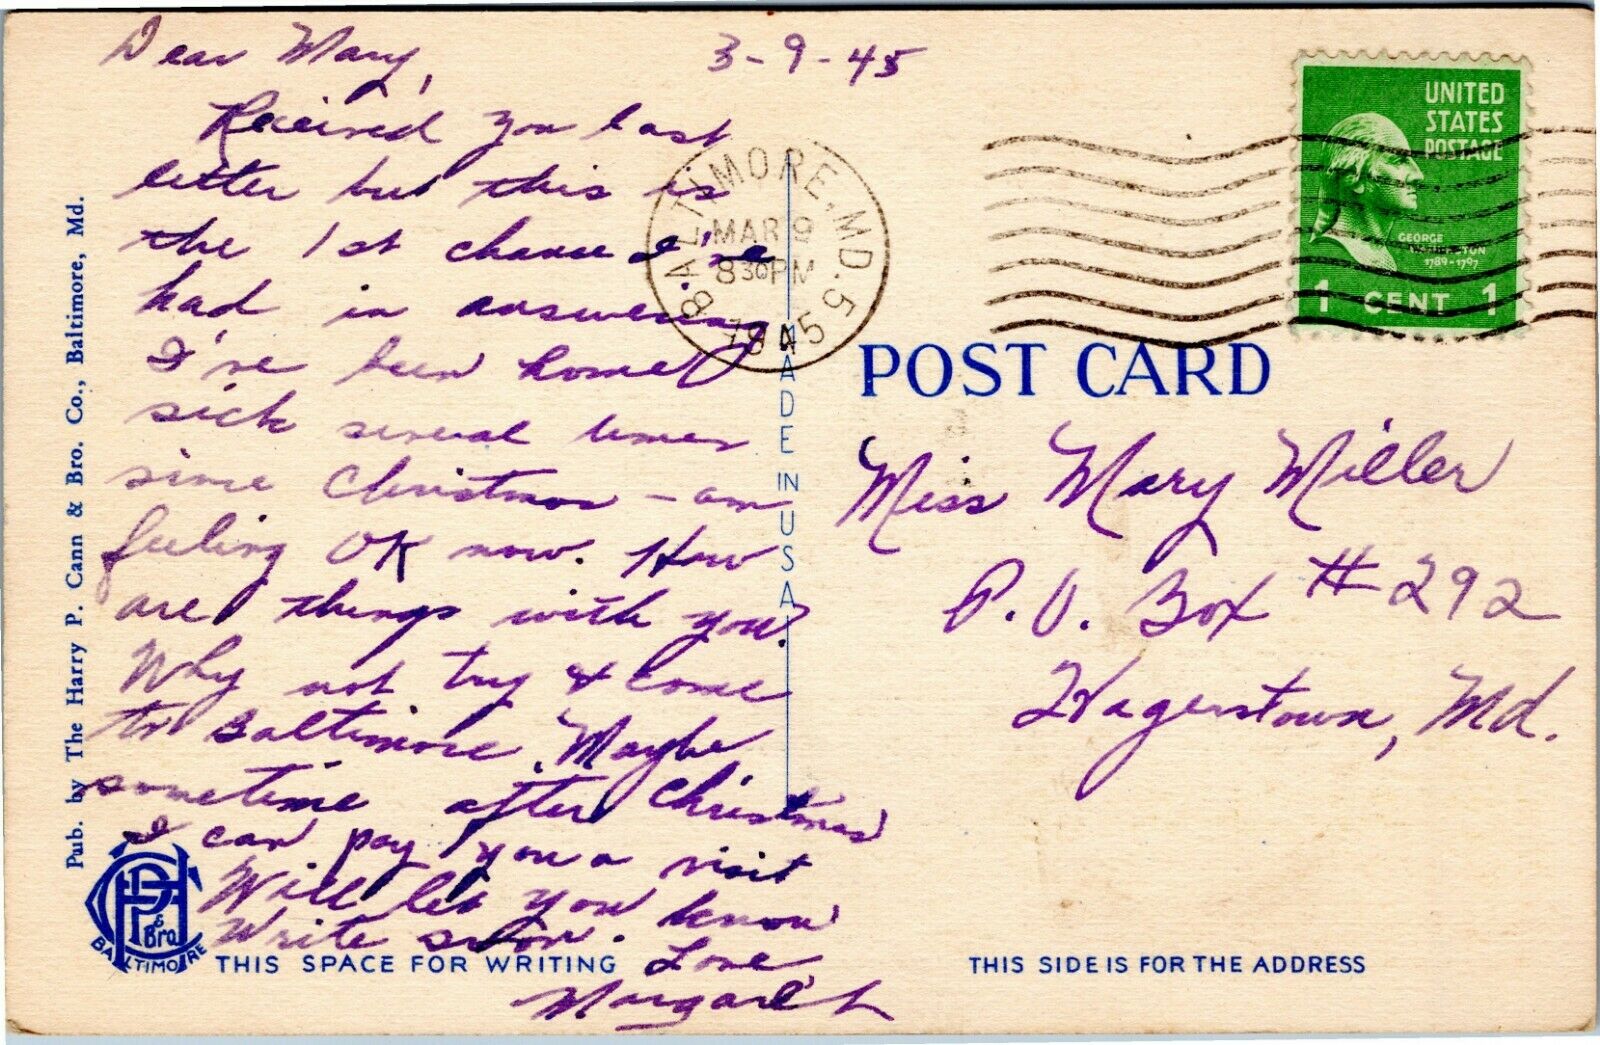 Dear Mary,
3-9-45
Received you last
letter but this is
the 1st chance I've
had in answering
I've been home
sick several times
since Christmas - am
feeling OK now. How
are things with you?
Why not try & come
to Baltimore. Maybe
sometime after Christmas
I can pay you a visit
Will let you know
Write soon.
Love,
Margaret
THIS SPACE FOR WRITING
Pub. by The Harry P. Cann & Bro. Co., Baltimore, Md.
HPC
& Bro
BALTIMORE
MADE IN USA
BALTIMORE, MD. 5
MAR 9
830PM
1945
UNITED
STATES
POSTAGE
GEORGE
WASHINGTON
1789-1797
1 CENT 1
POST CARD
Miss Mary Miller
P.O. Box #292
Hagerstown, Md.
THIS SIDE IS FOR THE ADDRESS